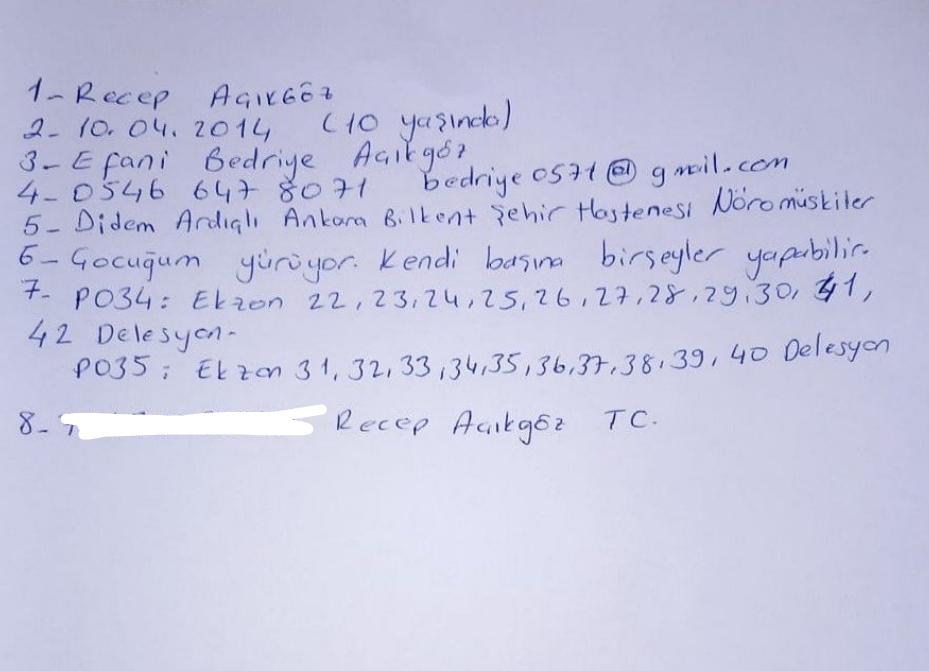 1- Recep Açıkgöz
2- 10.04.2014 (10 yaşında)
3- Efani Bedriye Açıkgöz
4- 0546 647 8071 bedriye0571@gmail.com
5- Didem Ardıçlı Ankara Bilkent Şehir Hastenesi Nöromüskiler
6- Çocuğum yürüyor. Kendi başına birşeyler yapabilir.
7- PO34: Ekzon 22, 23, 24, 25, 26, 27, 28, 29, 30, 41,
42 Delesyon-
PO35: Ekzon 31, 32, 33, 34, 35, 36, 37, 38, 39, 40 Delesyon
8- Recep Açıkgöz TC.